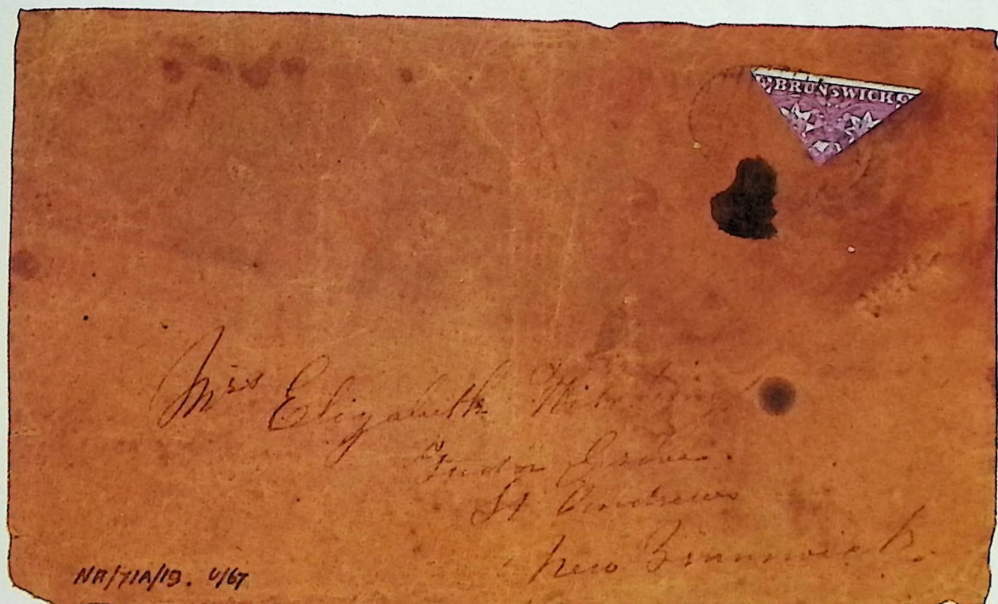 BRUNSWICK
Mrs Elizabeth
Tudor Grove.
St Andrews
New Brunswick.
NR/71A/19. U/67